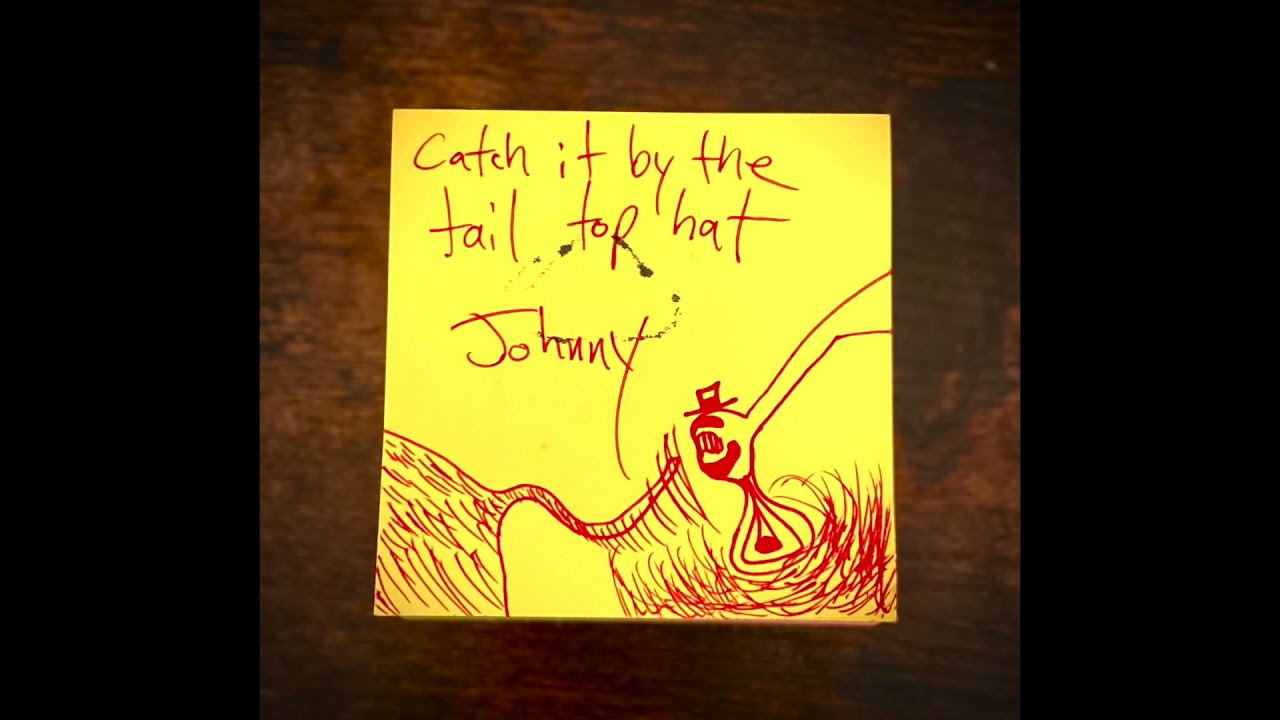 Catch it by the
tail top hat
Johnny